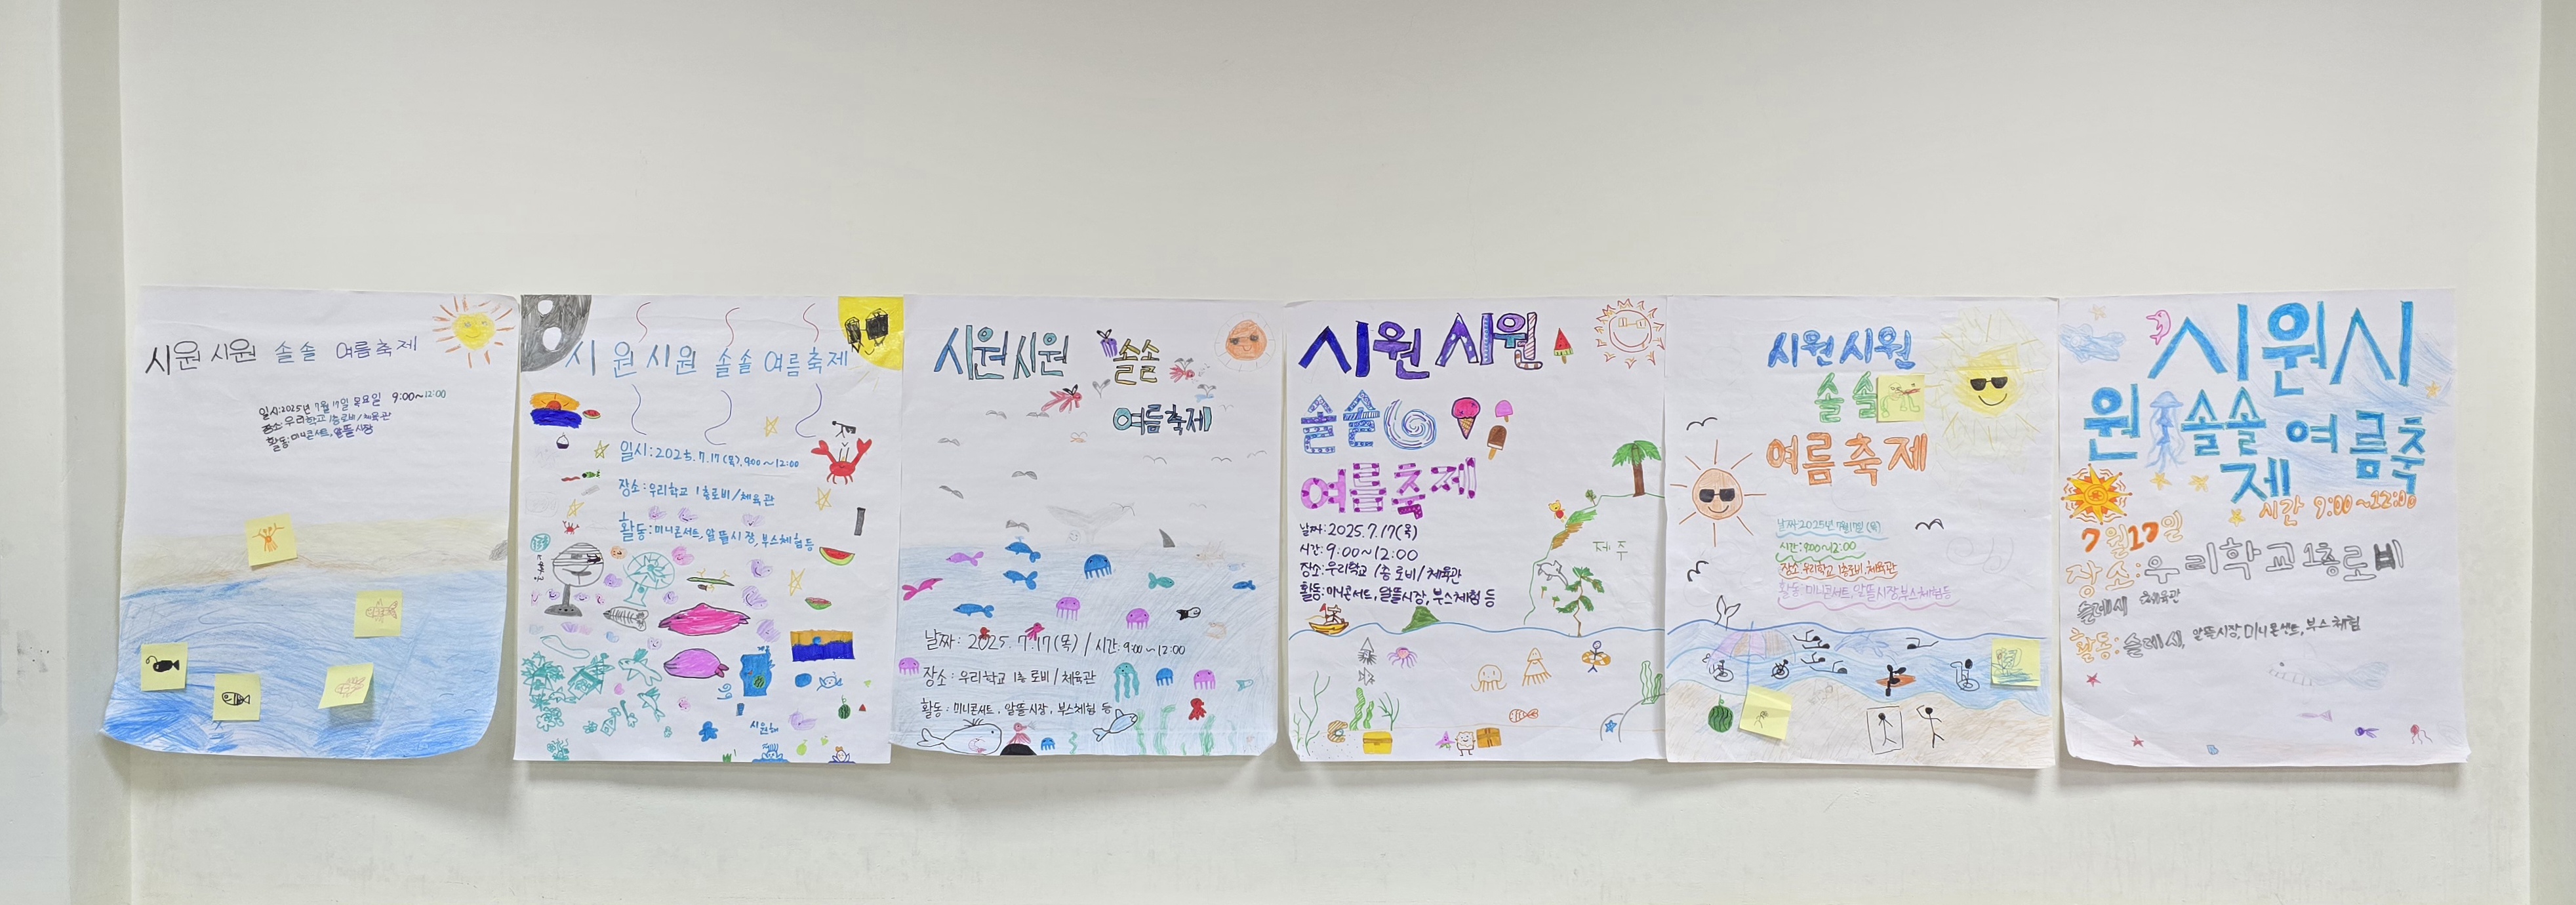 시원 시원 솔솔 여름축제
일시:2025년 7월 17일 목요일 9:00~12:00
장소:우리학교 1층로비/체육관
활동:미니콘서트, 알뜰시장
시원시원 솔솔 여름축제
일시:2025.7.17(목). 9:00~12:00
장소:우리학교 1층로비/체육관
활동:미니콘서트, 알뜰시장, 부스체험등
시원해
시원시원 솔솔
여름축제
날짜: 2025.7.17(목) / 시간: 9:00~12:00
장소: 우리학교 1층 로비 / 체육관
활동: 미니콘서트, 알뜰시장, 부스체험 등
시원 시원
솔솔
여름축제
날짜:2025.7.17(목)
시간:9:00~12:00
장소:우리학교 1층 로비/체육관
활동:미니콘서트, 알뜰시장, 부스체험 등
제주
시원시원
솔솔
여름축제
날짜:2025년 7월17일(목)
시간:9:00~12:00
장소:우리학교 1층로비,체육관
활동:미니콘서트,알뜰시장,부스체험등
시원시
원 솔솔 여름축
제
시간 9:00~12:00
7월17일
장소:우리학교 1층로비
슬레시 체육관
활동:슬레시, 알뜰시장, 미니콘센트, 부스체험